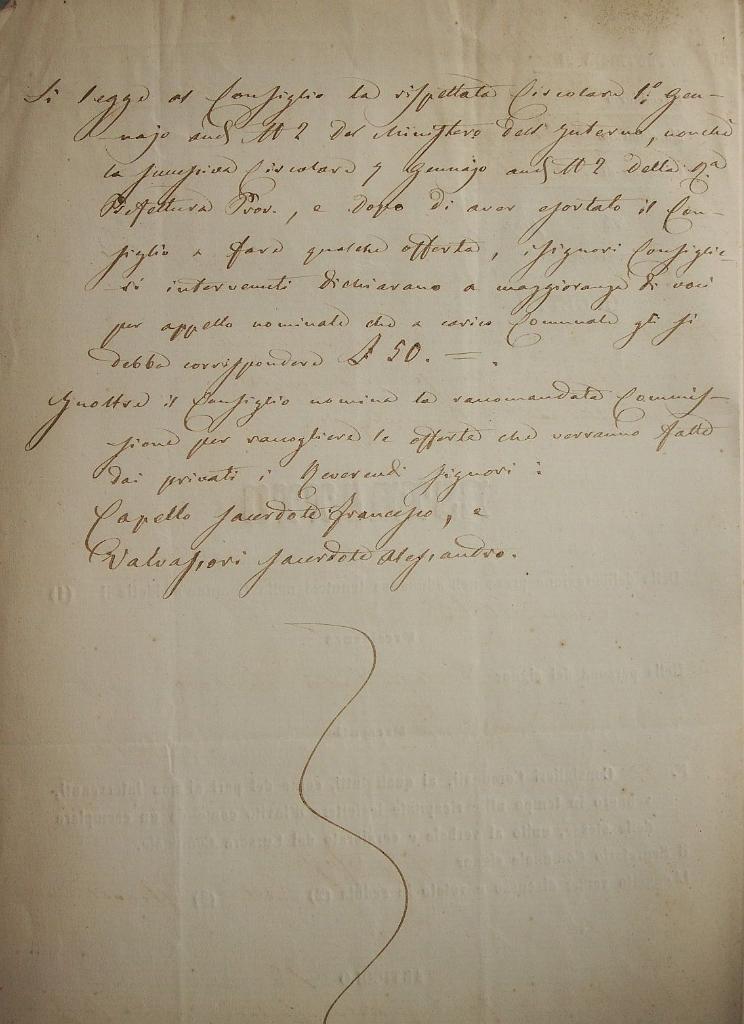 Si legge al Consiglio la rispettata Circolare 1.º Gen-
najo and. N 2 del Ministero dell'Interno, nonchè
la successiva Circolare 7 Gennajo and. N 2 della R.a
Prefettura Prov., e dopo di aver esortato il Con-
siglio a fare qualche offerta, i Signori Consiglie-
ri intervenuti dichiarano a maggioranza di voci
per appello nominale che a carico Comunale gli si
debba corrispondere £ 50. = .
Inoltre il Consiglio nomina la raccomandata Commis-
sione per raccogliere le offerte che verranno fatte
dai privati i Reverendi Signori :
Capello Sacerdote Francesco, e
Valvassori Sacerdote Alessandro.